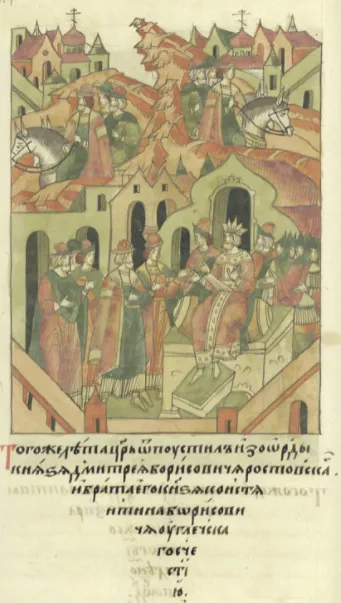 Тогоже лѣта цр҃ь ѿпоустилъ изоѡрды
кнѧѕѧ дмитреѧ борисовичѧ ростовска.
ибрата его кн҃ѕѧ констѧ
нтина бѡрисови
чѧ оуглечска
го с че
стї
ю.